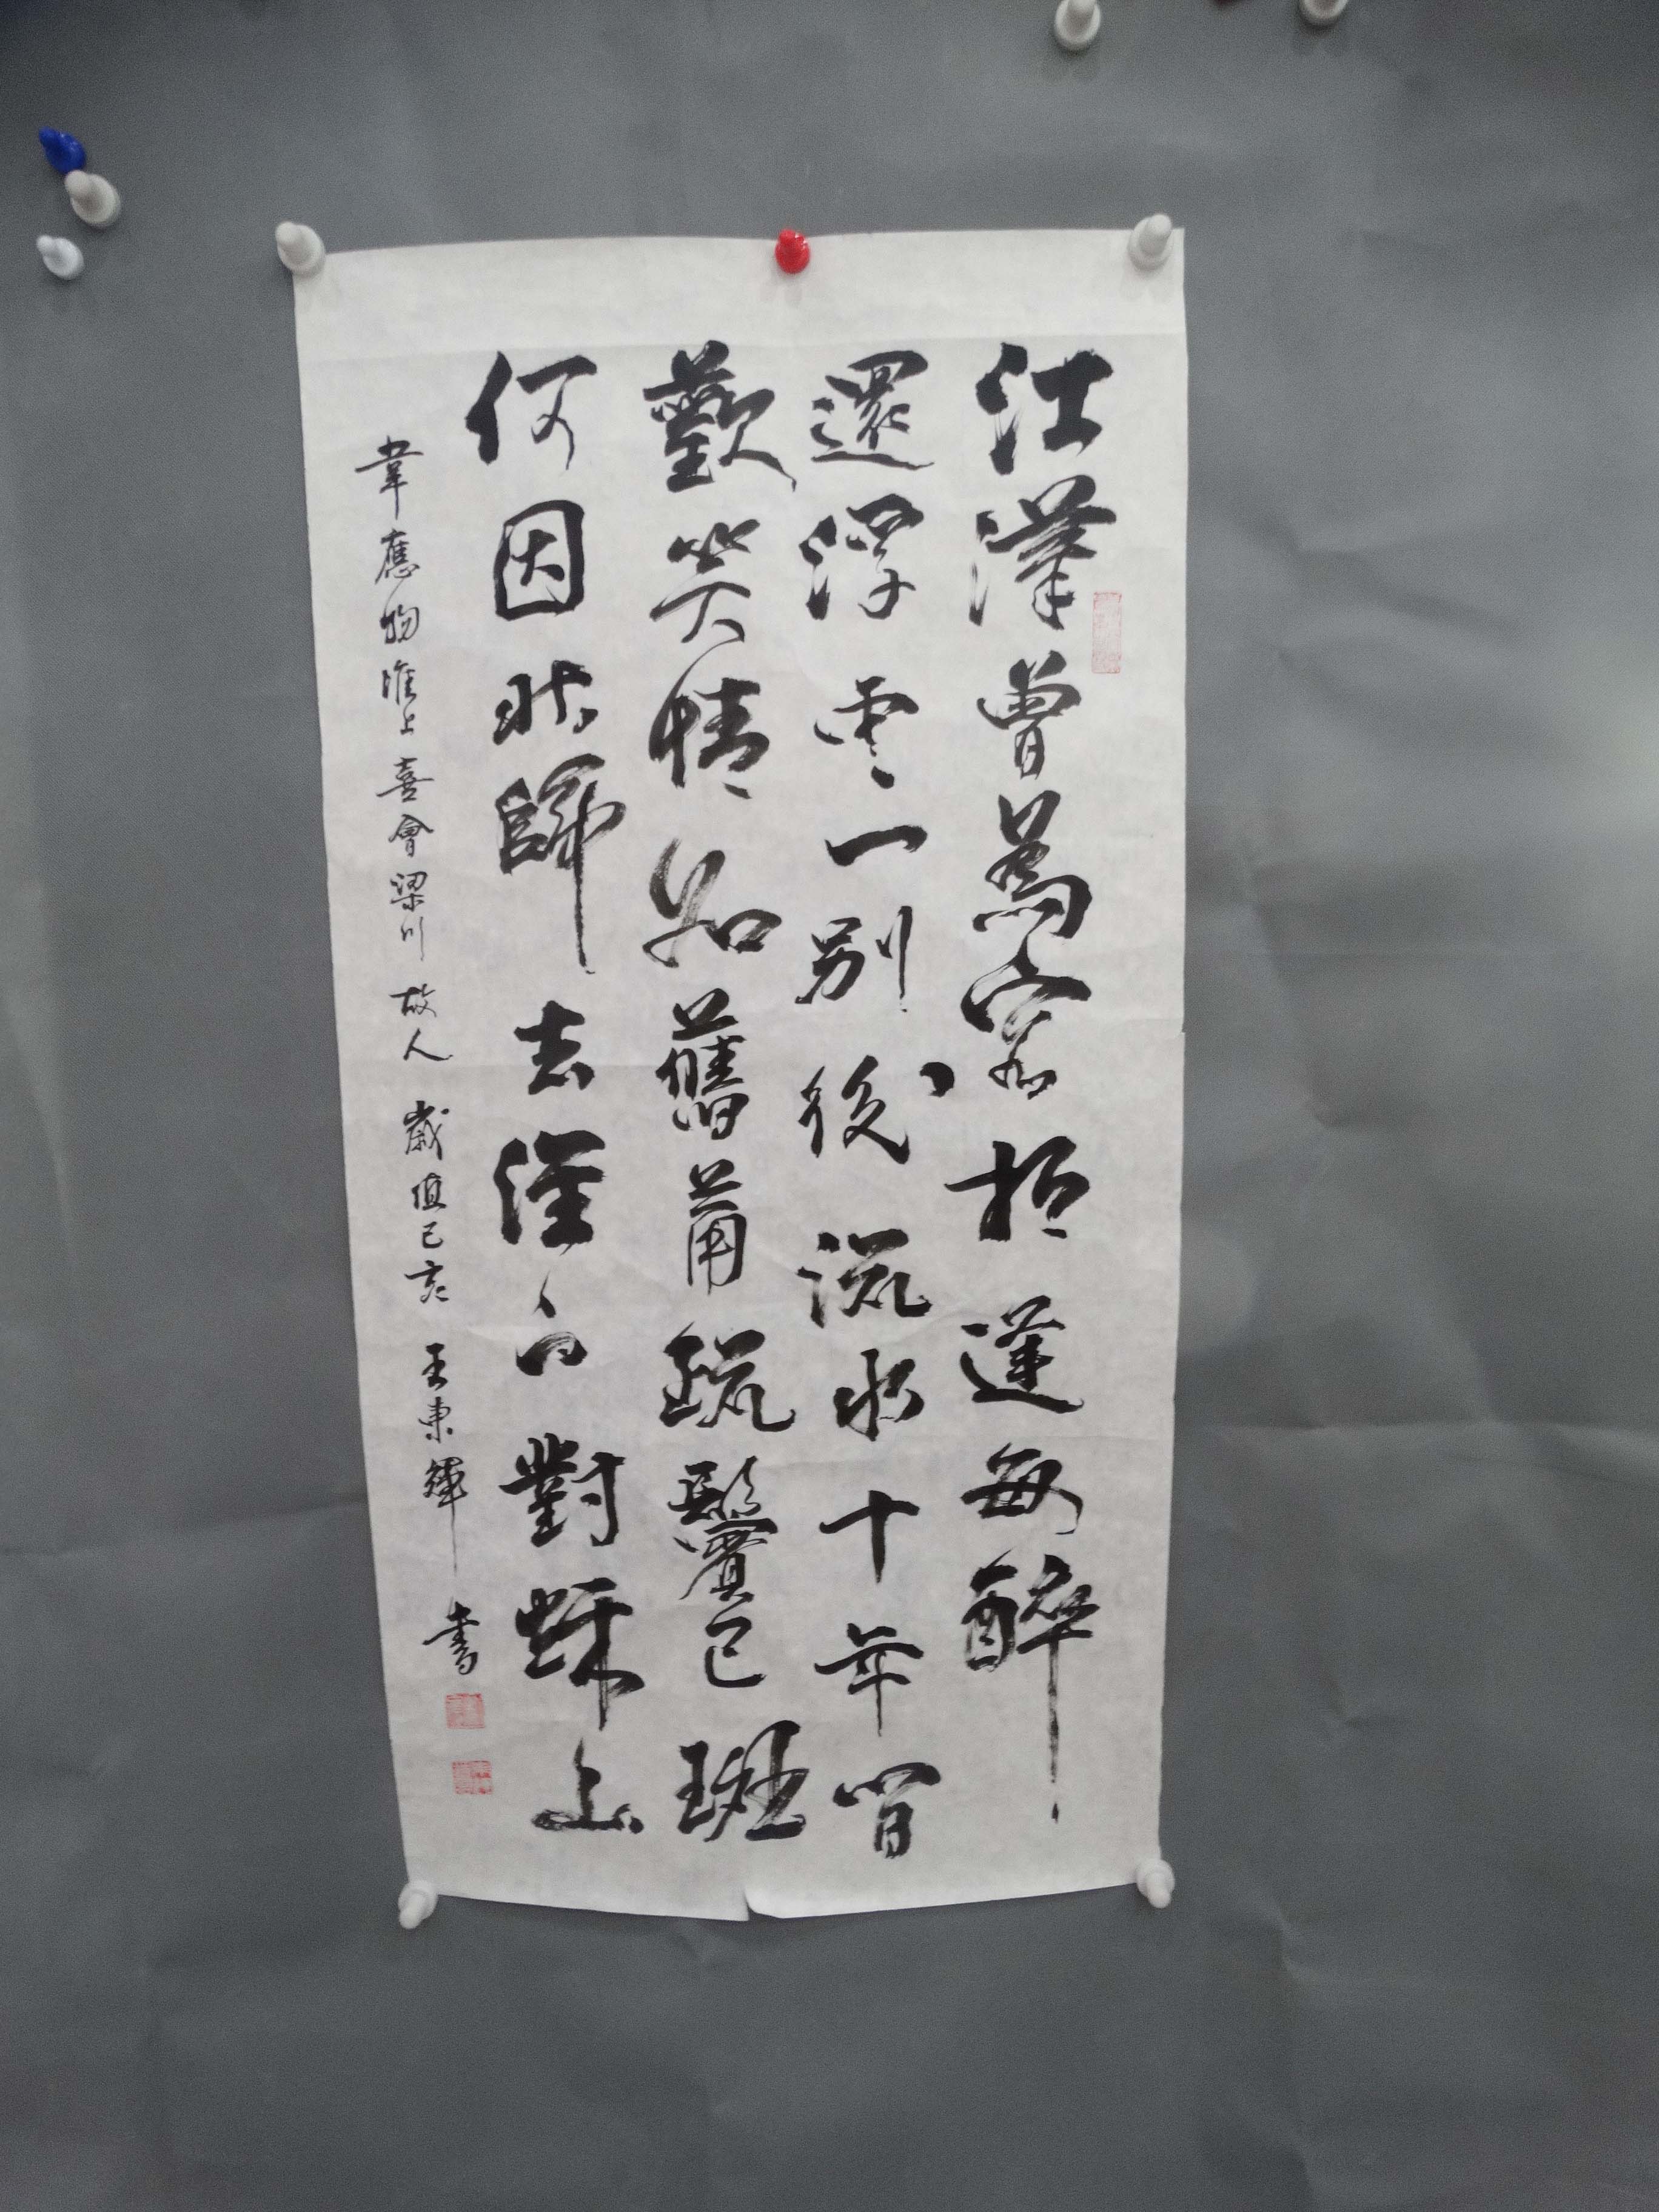 江漢曾為客相逢每醉
還浮雲一別後流水十年間
歡笑情如舊蕭疏鬢已斑
何因北歸去淮上對秋山
韋應物淮上喜會梁川故人 歲值己亥 王東輝 書